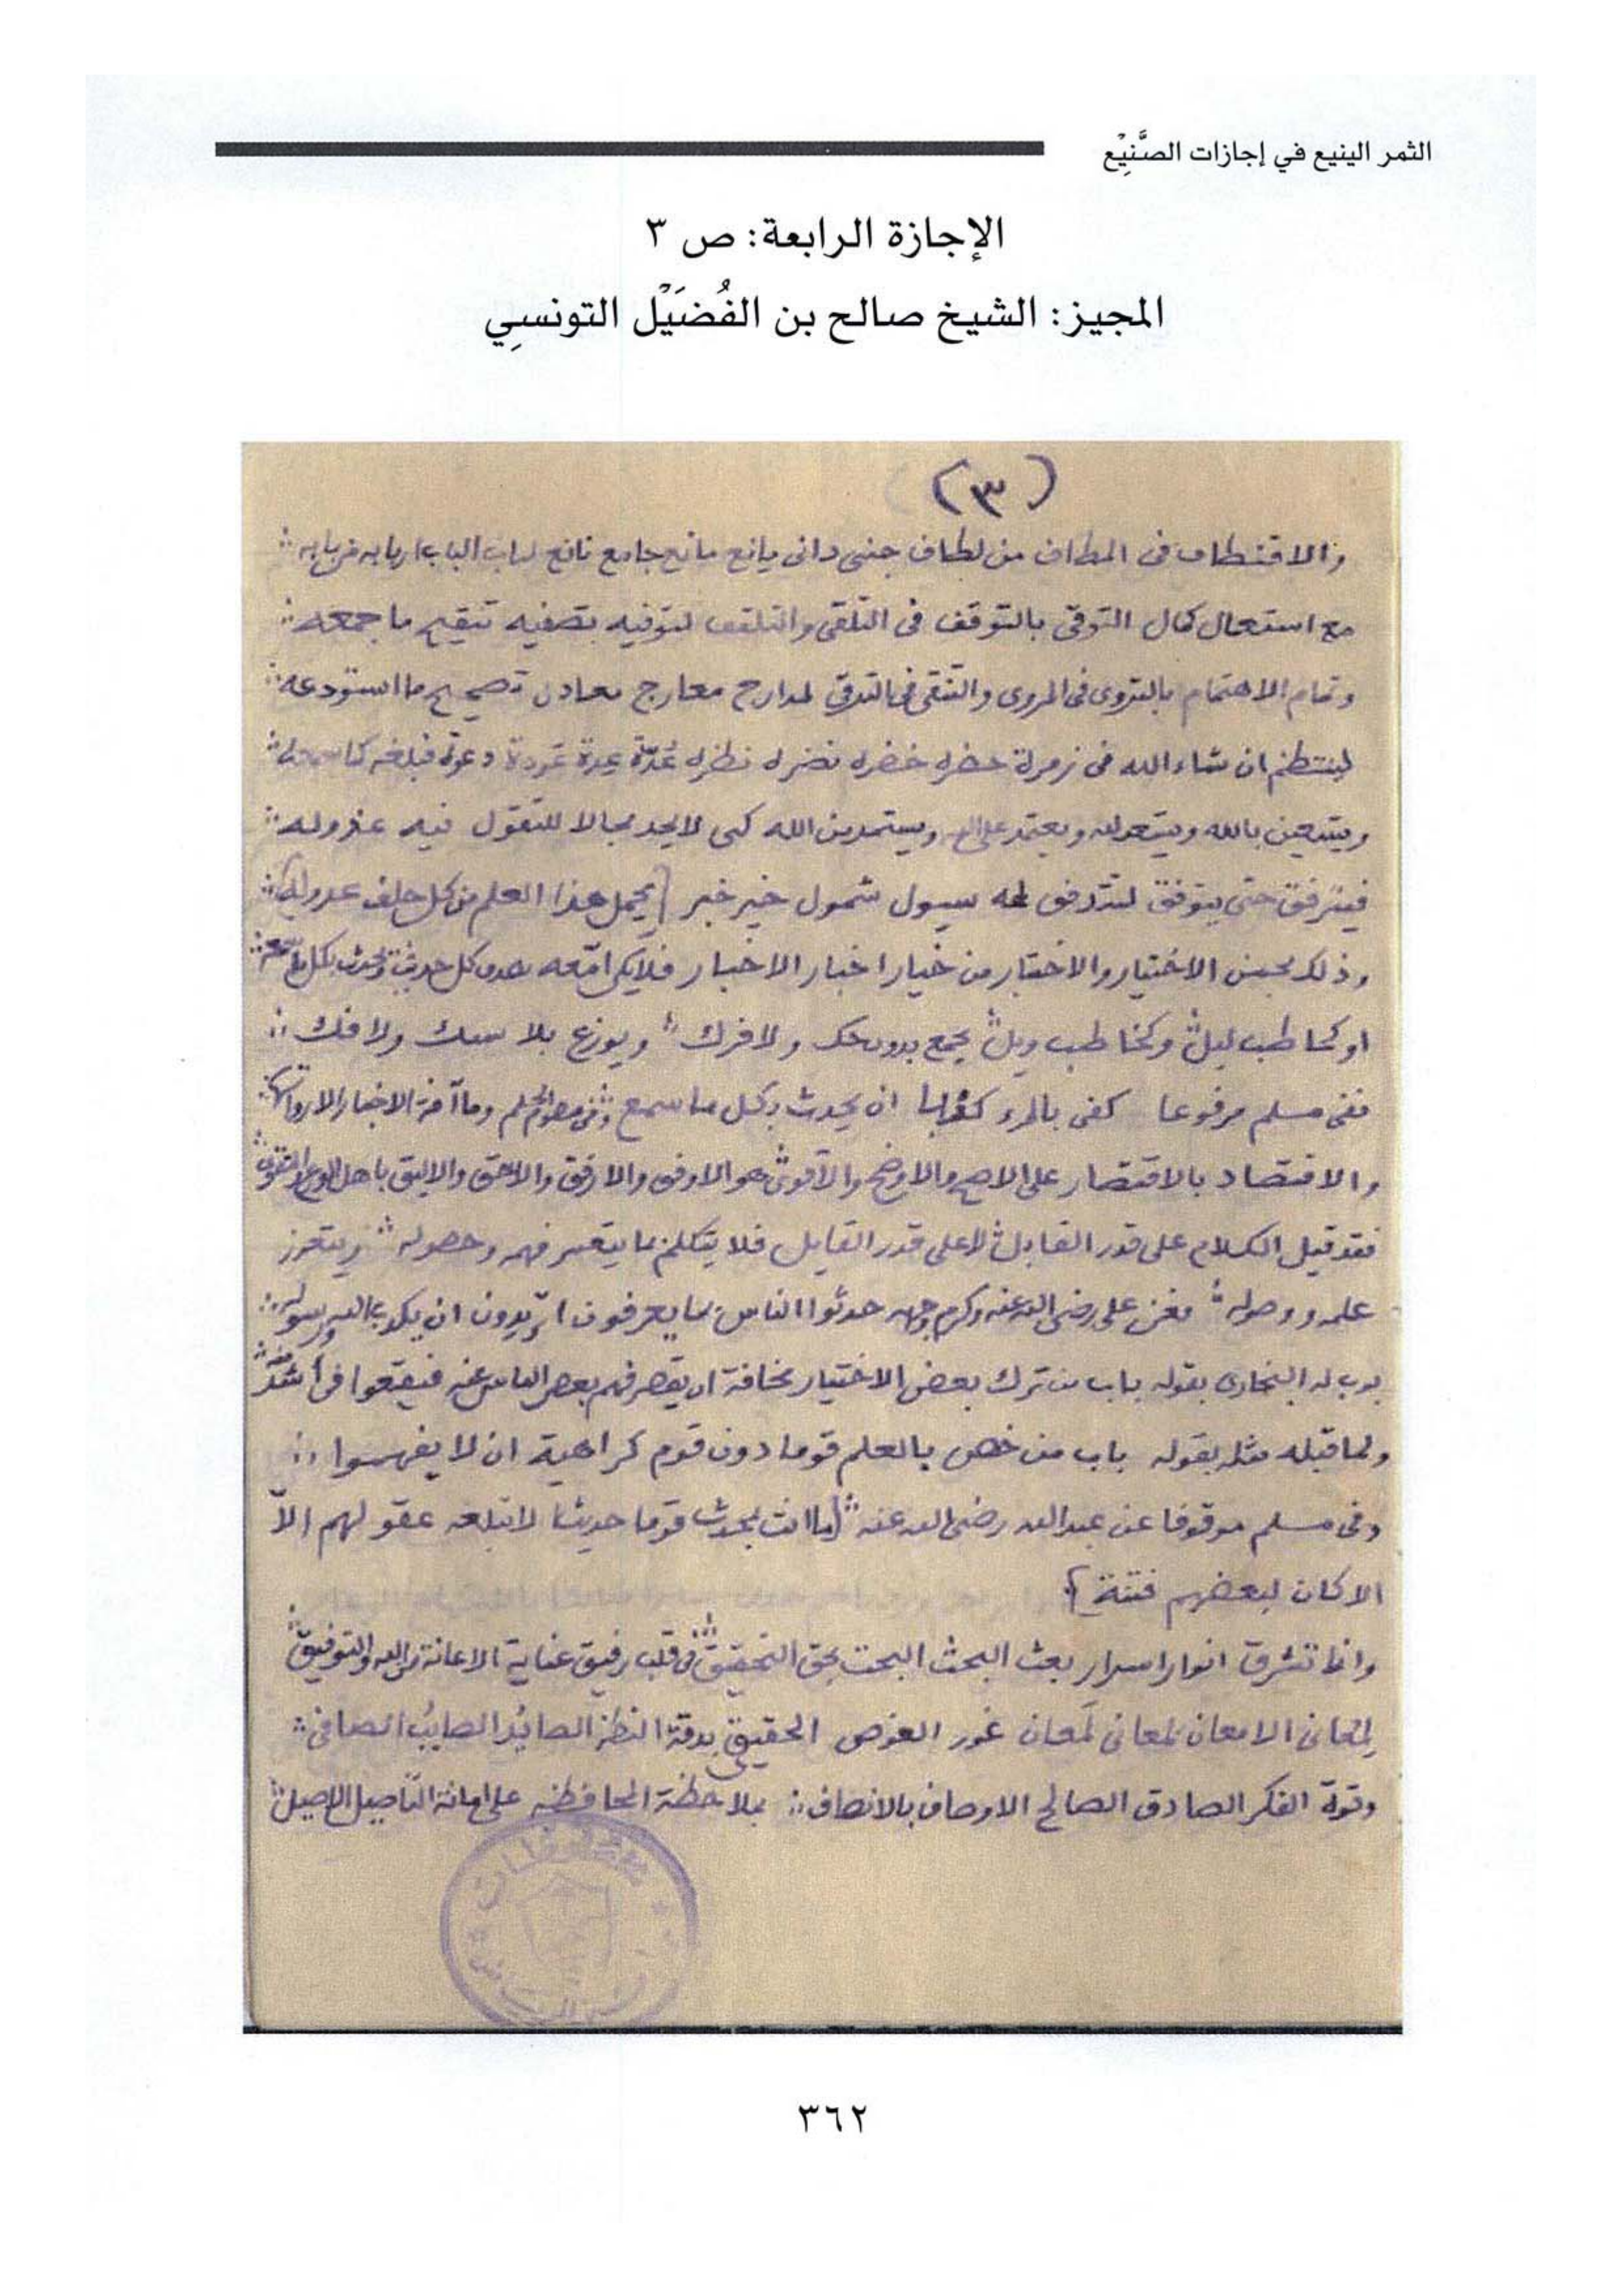 الثمر الينيع في إجازات الصَّنِيْع
الإجازة الرابعة: ص ٣
المجيز: الشيخ صالح بن الفُضَيْل التونسِي
(٣)
والاقتطاف فى المطاف من لطاف جنى دانى يانع مانع جامع نافع لباب الباب اربابه
مع استعمال كمال التوقى بالتوقف فى التلقى والتلقف لتوفيه بتصفيه تنقيح ما جمعه
وتمام الاهتمام بالتروى فى المروى والتنقى فى الترقى لمدارج معارج معادن تصحيح ما استودعه
لينتظم ان شاء الله فى زمرة حضره خضره نضره نظره عُدّة عدة دعوة فبلغه كما سمعه
ويستعين بالله ويستعد لله ويعتمد على الله ويستمد من الله كى لا يجد مجالا للتقول فيه عذوله
فيترفق حتى يتوفق لتتدفق له سيول شمول خير خبر [يحمل هذا العلم من كل خلف عدوله]
وذلك بحسن الاختيار والاختبار من خيار اخبار الاخبار فلا يكن امّعه كل حديث يحدث بكل ما سمعه
او كحاطب ليل وكخاطب ويل يجمع بدون حك ولا فرك ويوزع بلا سبك ولا فك
ففى مسلم مرفوعا كفى بالمرء كذبا ان يحدث بكل ما سمع وما آفة الاخبار الا رواتها
والاقتصاد بالاقتصار على الاصح والاوضح والاقوى هو الاوفق والارفق والاحق والاليق باهل الورع والتقوى
فقد قيل الكلام على قدر القابل لا على قدر القايل فلا يتكلم بما يتعسر فهمه وحصوله ويتعزز
علمه ووصوله فعن على رضى الله عنه وكرم وجهه حدثوا الناس بما يعرفون اتريدون ان يكذب الله ورسوله
بوب له البخارى بقوله باب من ترك بعض الاختيار مخافة ان يقصر فهم بعض الناس عنه فيقعوا فى اشد منه
ولما قبله مثله بقوله باب من خص بالعلم قوما دون قوم كراهية ان لا يفهموا
وفى مسلم موقوفا عن عبد الله رضى الله عنه [ما انت بمحدث قوما حديثا لا تبلغه عقولهم الاّ
الا كان لبعضهم فتنة]
وانما تشرق انوار اسرار بعث البحث البحت بحق التحقيق فى قلب رفيق عناية الاعانة من الله والتوفيق
لمعانى الامعان لمعانى لَمعان غور الغوص الحقيق بدقة النظر الصائد الصايب الصافى
وقوة الفكر الصادق الصالح الاوصاف بالانصاف بملاحظة المحافظه على امانة التأصيل الاصيل
٣٦٢